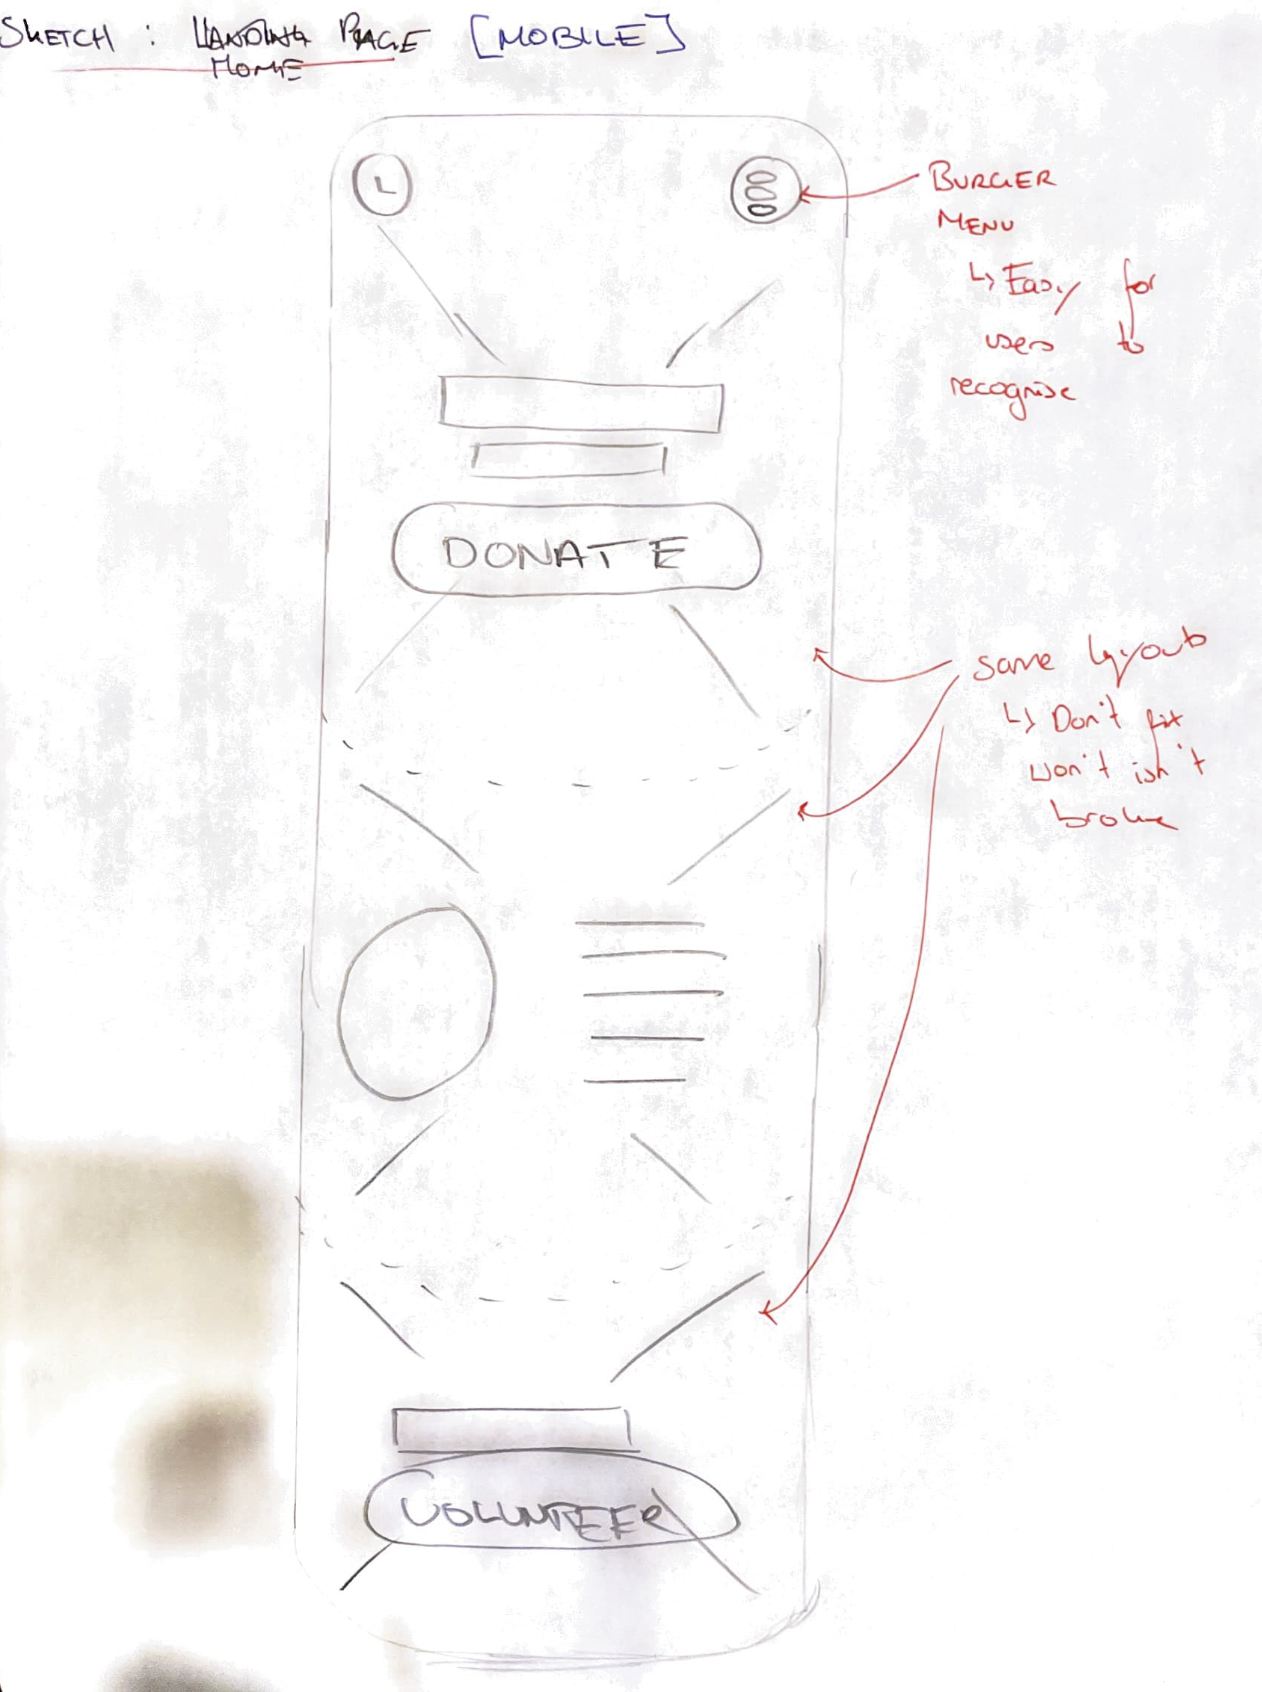 SKETCH : LANDING PAGE [MOBILE]
HOME
L
BURGER
MENU
↳ Easy for
users to
recognise
DONATE
same layout
↳ Don't fix
won't isn't
broke
VOLUNTEER